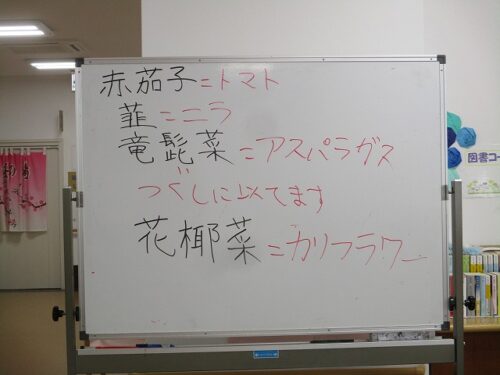 赤茄子=トマト
韮=ニラ
竜髭菜=アスパラガス
つくしに似てます
花椰菜=カリフラワー
図書コー